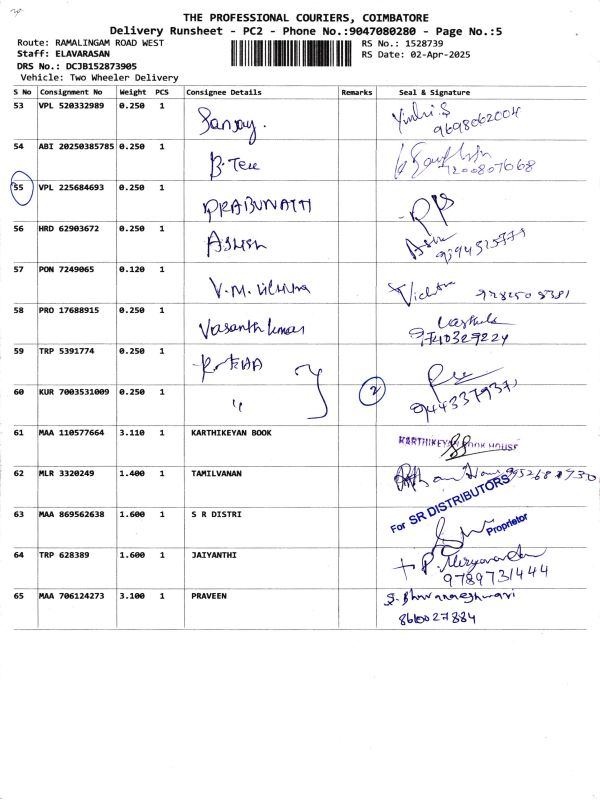 THE PROFESSIONAL COURIERS, COIMBATORE
Delivery Runsheet - PC2 - Phone No.:9047080280 - Page No.:5
Route: RAMALINGAM ROAD WEST
RS No.: 1528739
Staff: ELAVARASAN
RS Date: 02-Apr-2025
DRS No.: DCJB152873905
Vehicle: Two Wheeler Delivery
S No Consignment No Weight PCS Consignee Details Remarks Seal & Signature
53 VPL 520332989 0.250 1 Sanjay.
9698062004
54 ABI 20250385785 0.250 1
55 VPL 225684693 0.250 1 PRABUNATH
56 HRD 62903672 0.250 1 Ashish
57 PON 7249065 0.120 1
58 PRO 17688915 0.250 1 Vasanth kumar
59 TRP 5391774 0.250 1
60 KUR 7003531009 0.250 1 〃 2
61 MAA 110577664 3.110 1 KARTHIKEYAN BOOK KARTHIKEYAN BOOK HOUSE
62 MLR 3320249 1.400 1 TAMILVANAN
63 MAA 869562638 1.600 1 S R DISTRI For SR DISTRIBUTORS
Proprietor
64 TRP 628389 1.600 1 JAIYANTHI
9789731444
65 MAA 706124273 3.100 1 PRAVEEN S. Bhuvaneshwari
8610027884